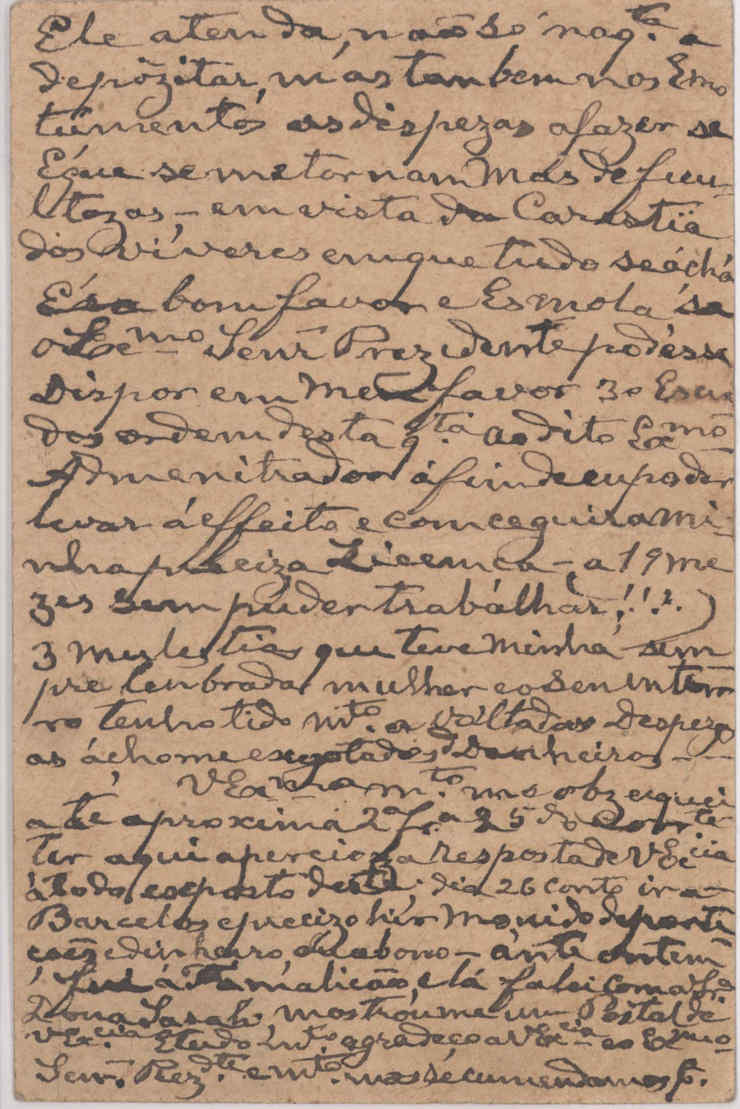 Ele atenda, não só na q.ta a
depózitar, más tanbem nos Emo
tumentos as dispezas afazer se
É que se metornam más defecu-
ltozas, - em vista da Carestia
dos víveres emque tudo seáchá
bom favor e Esmola se
o Ex.mo Senr. Prezidente podésse
Dispor em Meu favor 30 Escu
dos ordem desta q.ta ao dito Ex.mo
Admenitrador áfim de eu poder
levar á effeito e comceguir a mi-
nha preciza Licemca -, a 19 me
zes sem puder trabálhar!!!.)
3 mulestias que teve minhá sem
pre lenbrada mulher e o seu interr
ro tenho tido m.to avoltadas Despezas
as áchome exgotados Dinheiros - -
V Ex.cia m.to me obzequei
a té aproxima 2ª f.ra 25 do Corr.te
ter aqui apercioza resposta de V Ex.cia
átodo, exposto deste, dia 26 conto ir a
Barcelos eprecizo hir Monido deporte
edinheiro, ou abono - ánte ontem
fui á Famalicão, e lá falei com a Sr.a
Dona Sarah, mostroume um Postal de
V Ex.cia E tudo m.to agradeço a V Ex.cia e o Ex.mo
Senr. Prez.dte e m.to nos sécumendamos